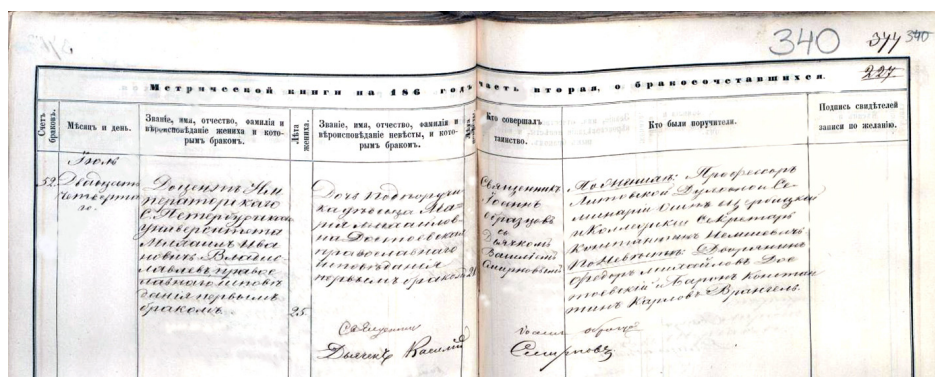 340
377 340
Метрической книги на 186 годъ, часть вторая, о бракосочетавшихся.
227
Счетъ браковъ.
Мѣсяцъ и день.
Званіе, имя, отчество, фамилія и вѣроисповѣданіе жениха и которымъ бракомъ.
Лѣта жениха.
Званіе, имя, отчество, фамилія и вѣроисповѣданіе невѣсты, и которымъ бракомъ.
Кто совершалъ таинство.
Кто были поручители.
Подпись свидѣтелей записи по желанію.
Іюль
52.
Двадцать
четверта
го.
Доцентъ Им
ператорскаго
С. Петербургскаго
университета
Михаилъ Ива
новичъ Владис
лавлевъ право
славнаго испов
данія первымъ
бракомъ.
25.
Дочь Подпоручи
ка дѣвица Ма
рія Михайлов
на Достоевская
православнаго
исповѣданія
первымъ бракомъ
21
Священникъ
Іоаннъ
Образцовъ
съ
Дьячкомъ
Василіемъ
Смирновымъ
По женихѣ: Профессоръ
Литовской Духовной Се
минаріи
и Коллежскій Секретарь
Константинъ
По невѣстѣ: Дворянинъ
Ѳеодоръ Михайловъ Дос
тоевскій и Баронъ Констан
тинъ Карловъ Врангель.
Священникъ
Іоаннъ Образцовъ
Дьячекъ Василій
Смирновъ